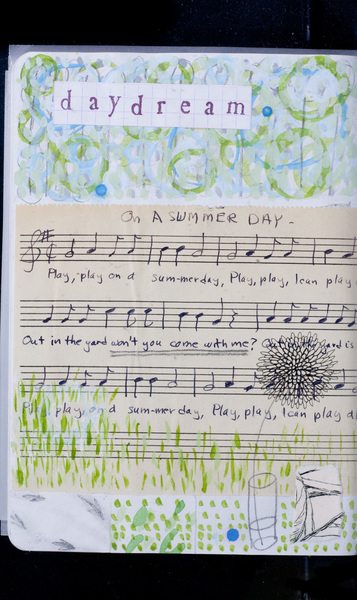 daydream
On A SUMMER DAY -
Play, play on a sum-merday, Play, play, I can play
Out in the yard won't you come with me? Out in the yard is
play, on a sum-mer day, Play, play, I can play al